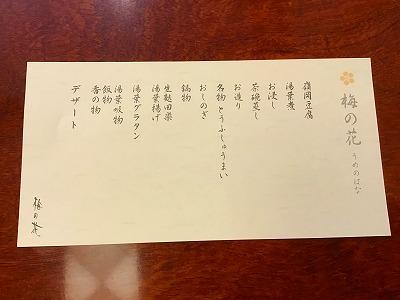 梅の花
うめのはな
嶺岡豆腐
湯葉煮
お浸し
茶碗蒸し
お造り
名物とうふしゅうまい
おしのぎ
鍋物
生麩田楽
湯葉揚げ
湯葉グラタン
湯葉吸物
飯物
香の物
デザート
梅の花